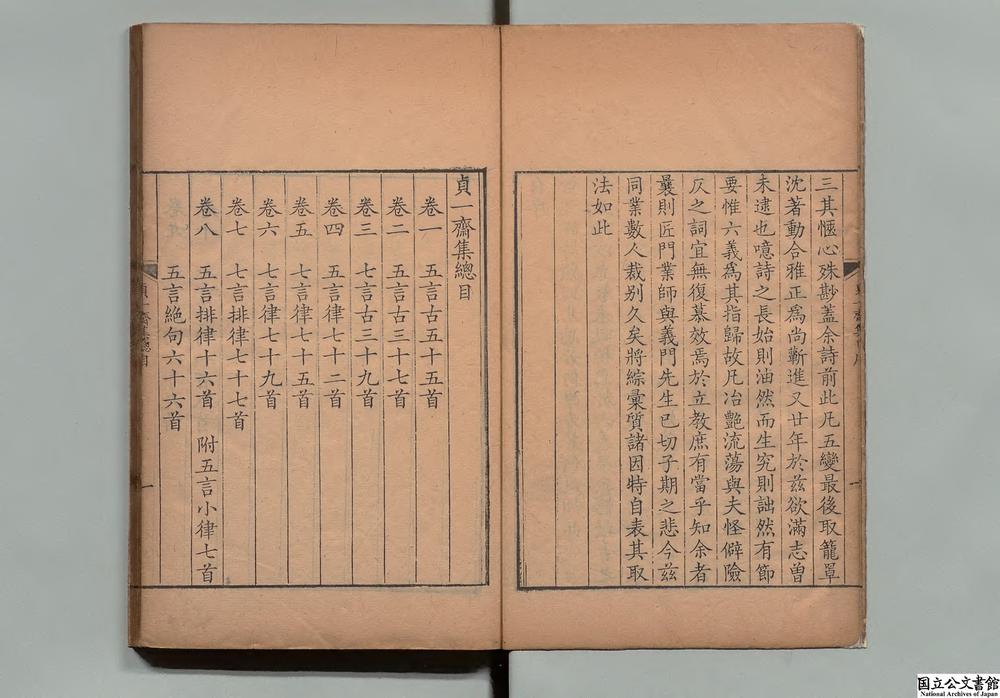 三其愜心殊尠蓋余詩前此凡五變最後取籠罩
沈著動合雅正為尚蘄進又廿年於茲欲滿志曽
未逮也噫詩之長始則油然而生究則詘然有節
要惟六義為其指歸故凡冶艷流蕩與夫怪僻險
仄之詞宜無復慕效焉於立教庶有當乎知余者
曩則匠門業師與義門先生已切子期之悲今茲
同業數人裁别久矣將綜彙質諸因特自表其取
法如此
貞一齋集總目
卷一 五言古五十五首
卷二 五言古三十七首
卷三 七言古三十九首
卷四 五言律七十二首
卷五 七言律七十五首
卷六 七言律七十九首
卷七 七言排律七十七首
卷八 五言排律十六首 附五言小律七首
五言絶句六十六首
貞一齋集總目
一
国立公文書館
National Archives of Japan